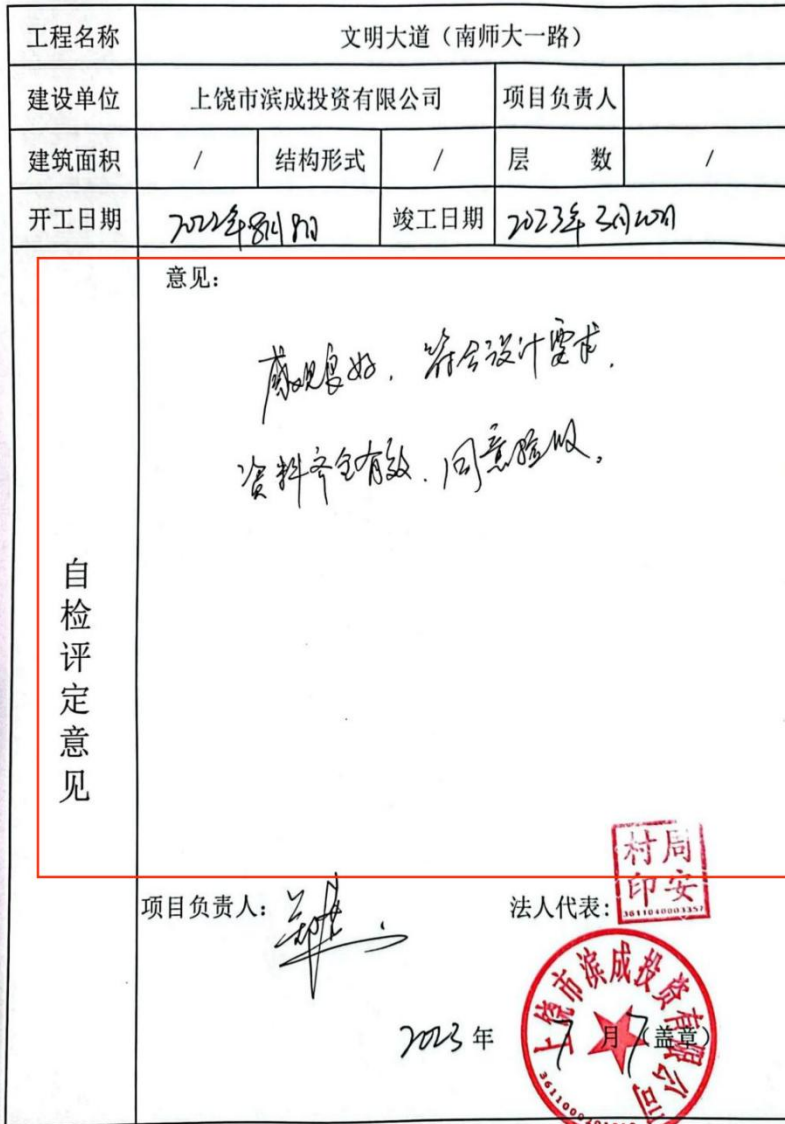 工程名称 文明大道（南师大一路）
建设单位 上饶市滨成投资有限公司 项目负责人
建筑面积 / 结构形式 / 层 数 /
开工日期 2022年8月8日 竣工日期 2023年3月20日
自检评定意见
意见：
感观良好，符合设计要求，
资料齐全有效，同意验收。
项目负责人： 法人代表：
周安村印
3611040003357
上饶市滨成投资有限公司
2023年 7月7（盖章）